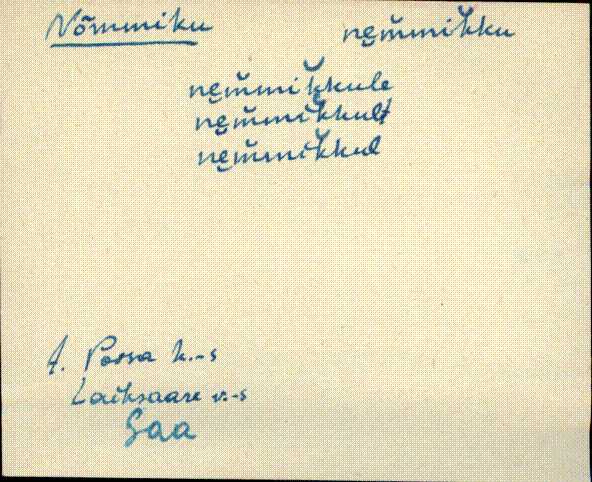 Nõmmiku ne̮m̆mik̆ku
ne̮m̆mik̆kule
ne̮m̆mik̆kult
ne̮m̆mik̆kul
A. Possa k.-s
Laiksaare v.-s
Saa